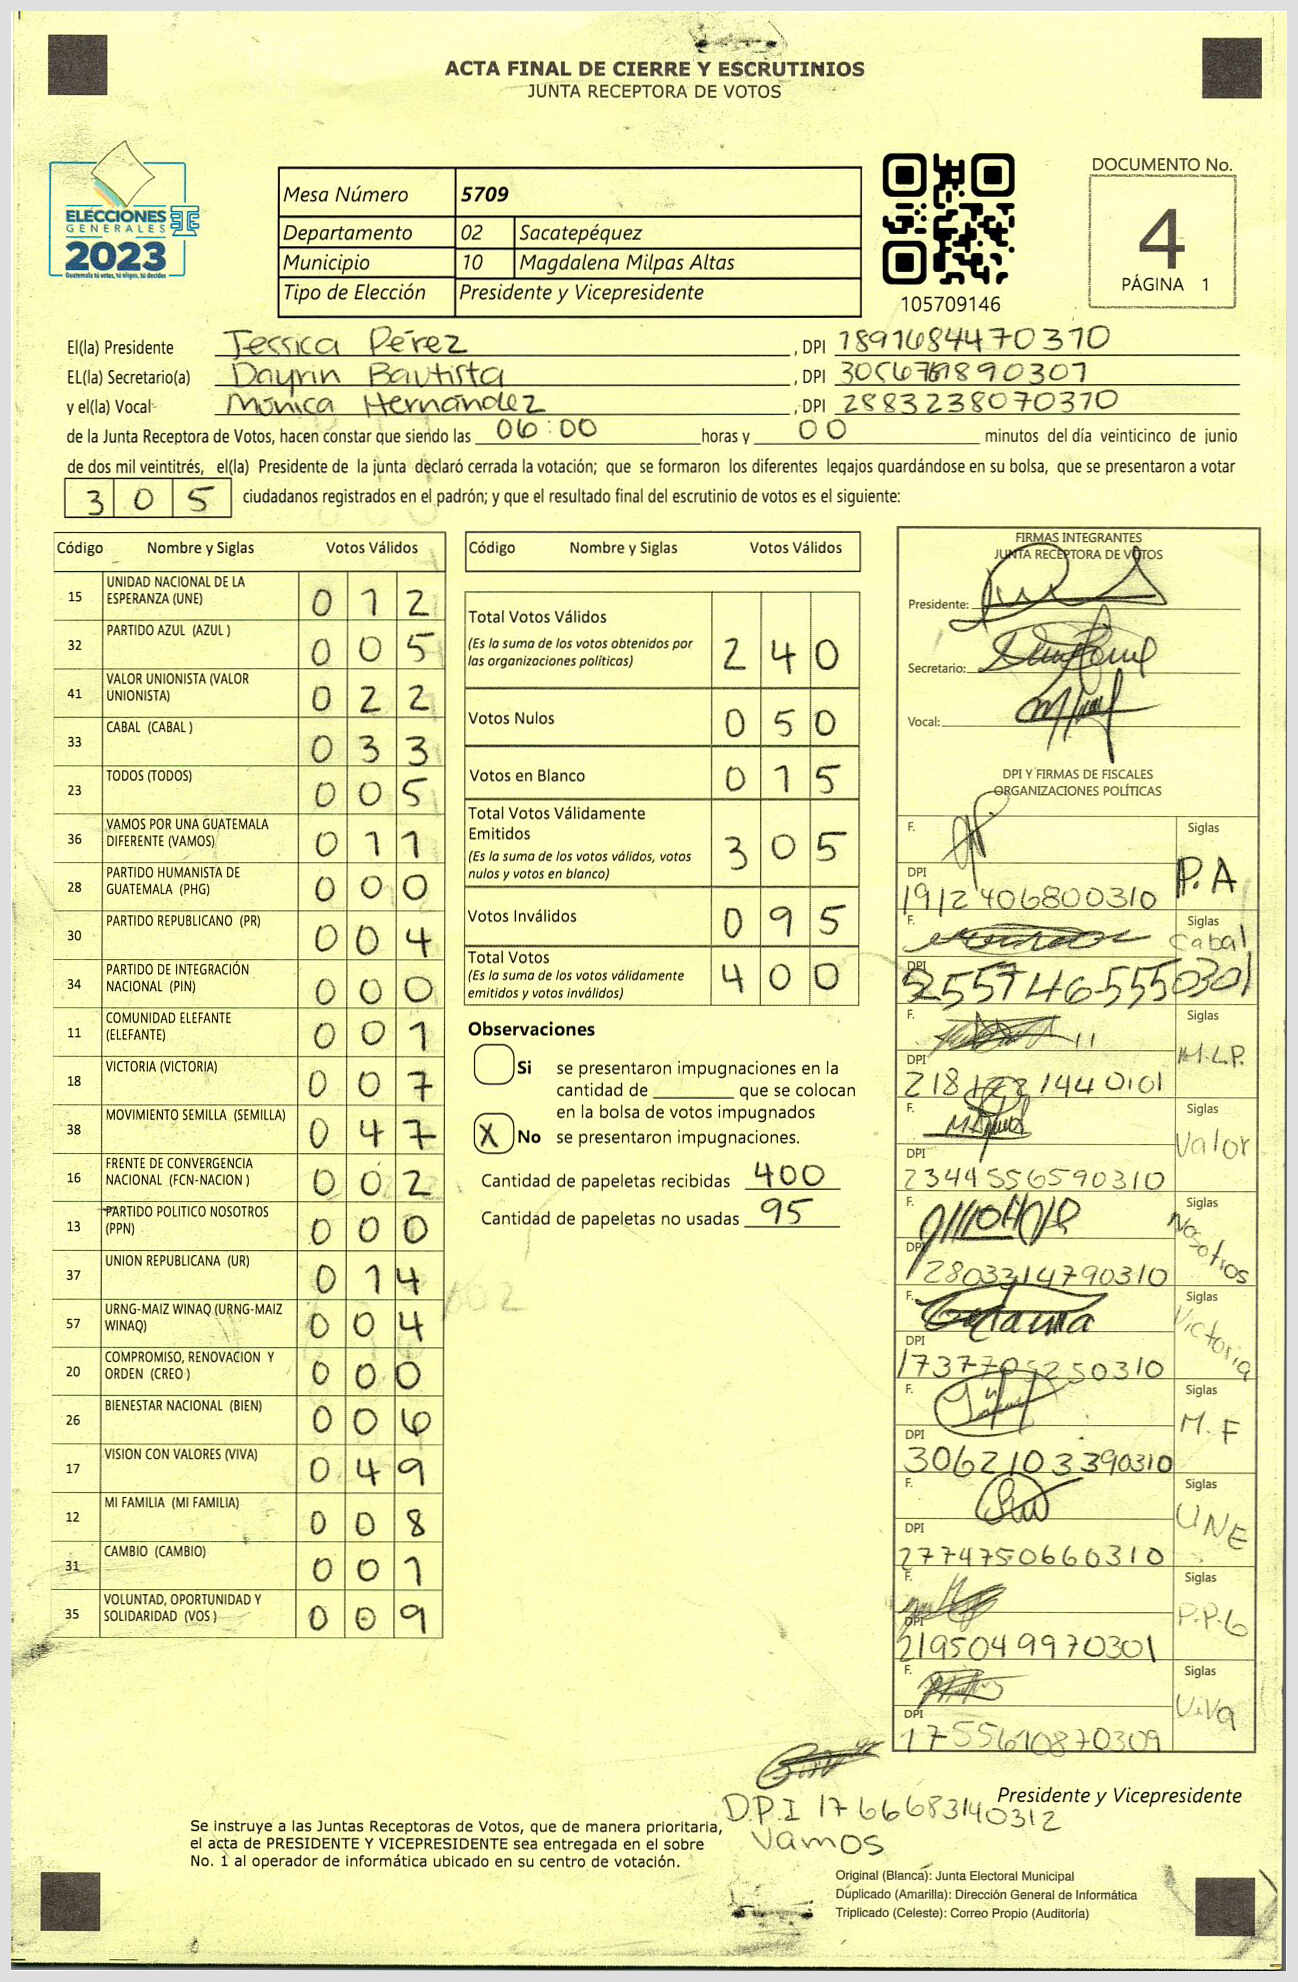 ACTA FINAL DE CIERRE Y ESCRUTINIOS
JUNTA RECEPTORA DE VOTOS
ELECCIONES
GENERALES
2023
Guatemala tú votas, tú eliges, tú decides
Mesa Número 5709
Departamento 02 Sacatepéquez
Municipio 10 Magdalena Milpas Altas
Tipo de Elección Presidente y Vicepresidente
105709146
DOCUMENTO No.
4
PÁGINA 1
El(la) Presidente Jessica Pérez, DPI 1891684470310
EL(la) Secretario(a) Dayrin Bautista, DPI
y el(la) Vocal Mónica Hernández, DPI 2883238070310
de la Junta Receptora de Votos, hacen constar que siendo las 06:00 horas y 00 minutos del día veinticinco de junio
de dos mil veintitrés, el(la) Presidente de la junta declaró cerrada la votación; que se formaron los diferentes legajos guardándose en su bolsa, que se presentaron a votar
305 ciudadanos registrados en el padrón; y que el resultado final del escrutinio de votos es el siguiente:
Código Nombre y Siglas Votos Válidos
15 UNIDAD NACIONAL DE LA ESPERANZA (UNE) 012
32 PARTIDO AZUL (AZUL ) 005
41 VALOR UNIONISTA (VALOR UNIONISTA) 022
33 CABAL (CABAL ) 033
23 TODOS (TODOS) 005
36 VAMOS POR UNA GUATEMALA DIFERENTE (VAMOS) 011
28 PARTIDO HUMANISTA DE GUATEMALA (PHG) 000
30 PARTIDO REPUBLICANO (PR) 004
34 PARTIDO DE INTEGRACIÓN NACIONAL (PIN) 000
11 COMUNIDAD ELEFANTE (ELEFANTE) 001
18 VICTORIA (VICTORIA) 007
38 MOVIMIENTO SEMILLA (SEMILLA) 047
16 FRENTE DE CONVERGENCIA NACIONAL (FCN-NACION ) 002
13 PARTIDO POLITICO NOSOTROS (PPN) 000
37 UNION REPUBLICANA (UR) 014
57 URNG-MAIZ WINAQ (URNG-MAIZ WINAQ) 004
20 COMPROMISO, RENOVACION Y ORDEN (CREO ) 000
26 BIENESTAR NACIONAL (BIEN) 006
17 VISION CON VALORES (VIVA) 049
12 MI FAMILIA (MI FAMILIA) 008
31 CAMBIO (CAMBIO) 001
35 VOLUNTAD, OPORTUNIDAD Y SOLIDARIDAD (VOS ) 009
Código Nombre y Siglas Votos Válidos
Total Votos Válidos 240
(Es la suma de los votos obtenidos por
las organizaciones políticas)
Votos Nulos 050
Votos en Blanco 015
Total Votos Válidamente
Emitidos 305
(Es la suma de los votos válidos, votos
nulos y votos en blanco)
Votos Inválidos 095
Total Votos 400
(Es la suma de los votos válidamente
emitidos y votos inválidos)
Observaciones
Si se presentaron impugnaciones en la
cantidad de ________ que se colocan
en la bolsa de votos impugnados
X No se presentaron impugnaciones.
Cantidad de papeletas recibidas 400
Cantidad de papeletas no usadas 95
FIRMAS INTEGRANTES
JUNTA RECEPTORA DE VOTOS
Presidente:
Secretario:
Vocal:
DPI Y FIRMAS DE FISCALES
ORGANIZACIONES POLÍTICAS
F. Siglas P.A
DPI 1912406800310
F. Siglas Cabal
DPI 2557465550301
F. Siglas M.L.P.
DPI
F. Siglas Valor
DPI 2344556590310
F. Siglas Nosotros
DPI 2803314790310
F. Siglas Victoria
DPI 1737705250310
F. Siglas M.F
DPI 3062103390310
F. Siglas UNE
DPI 2774750660310
F. Siglas
DPI 2195049970301
F. Siglas ViVa
DPI 1755610870309
Presidente y Vicepresidente
D.P.I 1766683140312
Vamos
Se instruye a las Juntas Receptoras de Votos, que de manera prioritaria,
el acta de PRESIDENTE Y VICEPRESIDENTE sea entregada en el sobre
No. 1 al operador de informática ubicado en su centro de votación.
Original (Blanca): Junta Electoral Municipal
Duplicado (Amarilla): Dirección General de Informática
Triplicado (Celeste): Correo Propio (Auditoria)